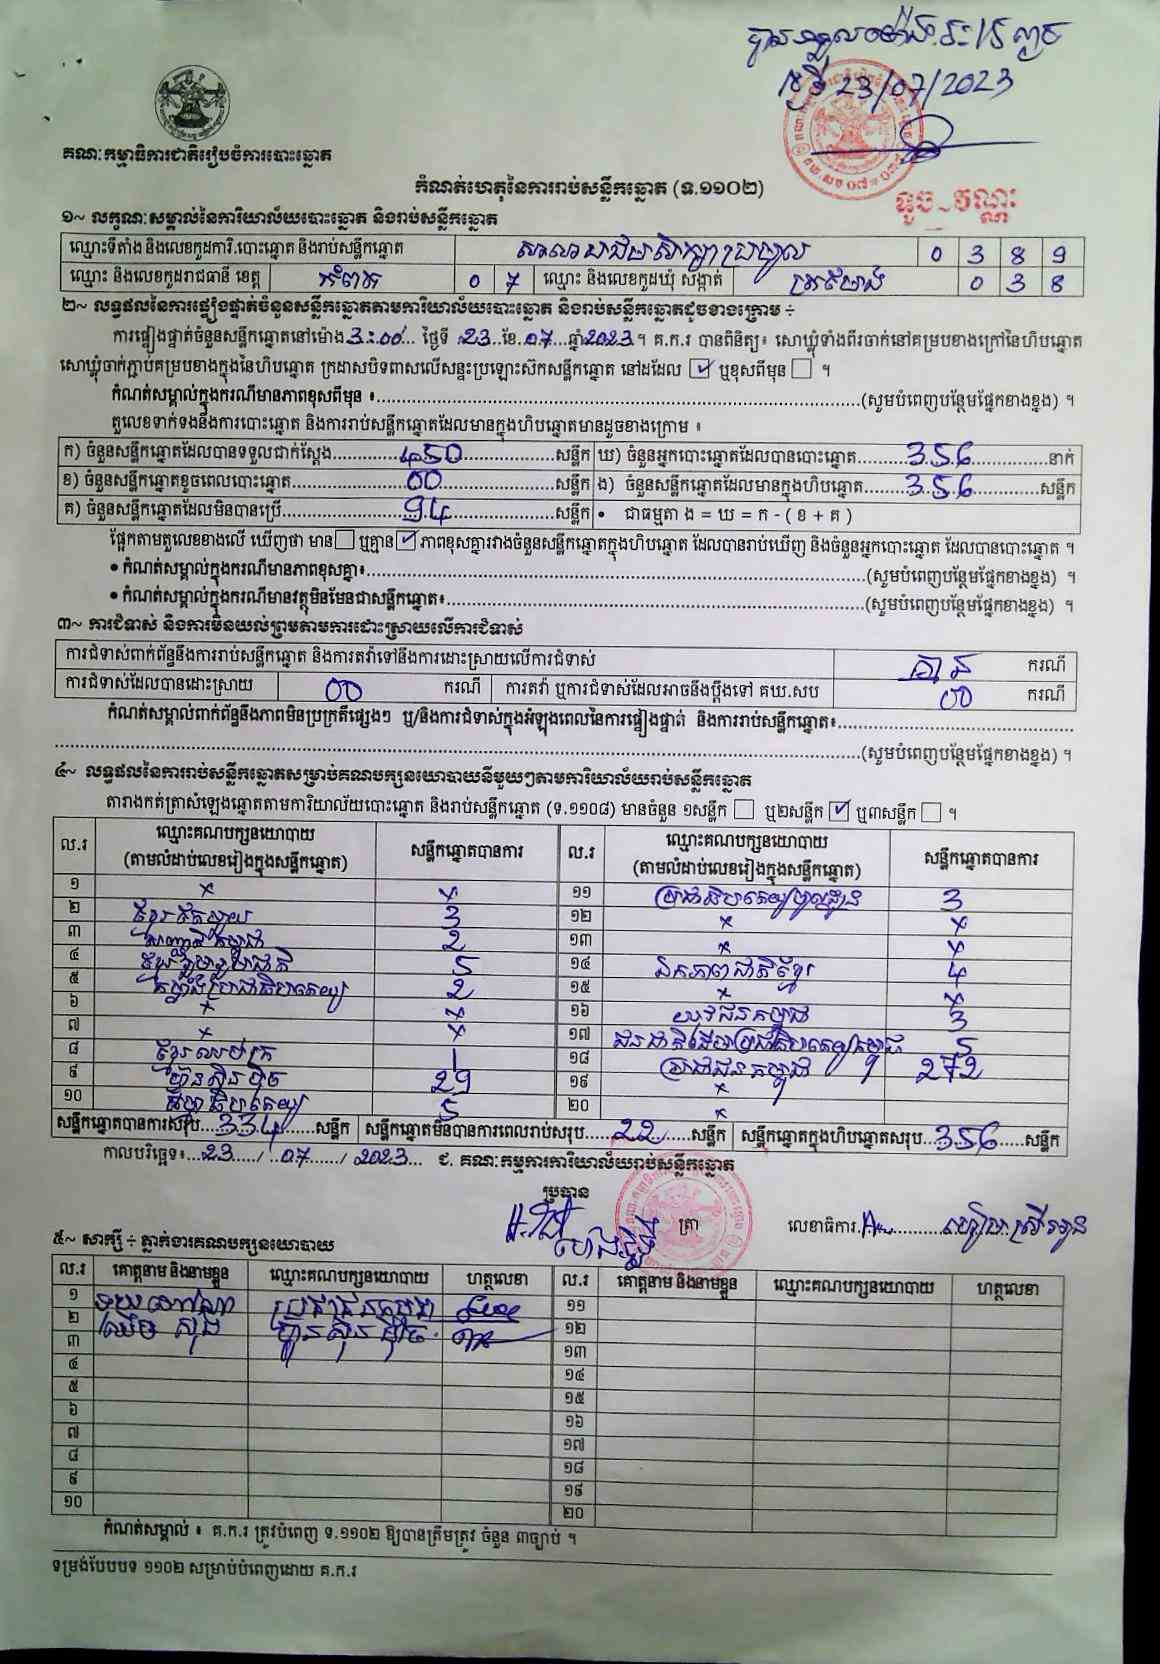 23/07/2023
គណៈកម្មាធិការជាតិរៀបចំការបោះឆ្នោត
កំណត់ហេតុនៃការរាប់សន្លឹកឆ្នោត (ទ.១១០២)
១~ លក្ខណៈសម្គាល់នៃការិយាល័យបោះឆ្នោត និងរាប់សន្លឹកឆ្នោត
ឈ្មោះទីតាំង និងលេខកូដការិ.បោះឆ្នោត និងរាប់សន្លឹកឆ្នោត 0 3 8 9
ឈ្មោះ និងលេខកូដរាជធានី ខេត្ត កំពត 0 7 ឈ្មោះ និងលេខកូដឃុំ សង្កាត់ 0 3 8
២~ លទ្ធផលនៃការផ្ទៀងផ្ទាត់ចំនួនសន្លឹកឆ្នោតតាមការិយាល័យបោះឆ្នោត និងរាប់សន្លឹកឆ្នោតដូចខាងក្រោម ÷
ការផ្ទៀងផ្ទាត់ចំនួនសន្លឹកឆ្នោតនៅម៉ោង 3:00 ថ្ងៃទី 23 ខែ 07 ឆ្នាំ 2023 ។ គ.ក.រ បានពិនិត្យ៖ សោឃ្លុំទាំងពីរចាក់នៅគម្របខាងក្រៅនៃហិបឆ្នោត
សោឃ្លុំចាក់ភ្ជាប់គម្របខាងក្នុងនៃហិបឆ្នោត ក្រដាសបិទពាសលើសន្ទះប្រឡោះស៊កសន្លឹកឆ្នោត នៅដដែល ☑ ឬខុសពីមុន ☐ ។
កំណត់សម្គាល់ក្នុងករណីមានភាពខុសពីមុន ៖ (សូមបំពេញបន្ថែមផ្នែកខាងខ្នង) ។
តួលេខទាក់ទងនឹងការបោះឆ្នោត និងការរាប់សន្លឹកឆ្នោតដែលមានក្នុងហិបឆ្នោតមានដូចខាងក្រោម ៖
ក) ចំនួនសន្លឹកឆ្នោតដែលបានទទួលជាក់ស្តែង 450 សន្លឹក ឃ) ចំនួនអ្នកបោះឆ្នោតដែលបានបោះឆ្នោត 356 នាក់
ខ) ចំនួនសន្លឹកឆ្នោតខូចពេលបោះឆ្នោត 00 សន្លឹក ង) ចំនួនសន្លឹកឆ្នោតដែលមានក្នុងហិបឆ្នោត 356 សន្លឹក
គ) ចំនួនសន្លឹកឆ្នោតដែលមិនបានប្រើ 94 សន្លឹក • ជាធម្មតា ង = ឃ = ក - ( ខ + គ )
ផ្អែកតាមតួលេខខាងលើ ឃើញថា មាន ☐ ឬគ្មាន ☑ ភាពខុសគ្នារវាងចំនួនសន្លឹកឆ្នោតក្នុងហិបឆ្នោត ដែលបានរាប់ឃើញ និងចំនួនអ្នកបោះឆ្នោត ដែលបានបោះឆ្នោត ។
• កំណត់សម្គាល់ក្នុងករណីមានភាពខុសគ្នា៖ (សូមបំពេញបន្ថែមផ្នែកខាងខ្នង) ។
• កំណត់សម្គាល់ក្នុងករណីមានវត្ថុមិនមែនជាសន្លឹកឆ្នោត៖ (សូមបំពេញបន្ថែមផ្នែកខាងខ្នង) ។
៣~ ការជំទាស់ និងការមិនយល់ព្រមតាមការដោះស្រាយលើការជំទាស់
ការជំទាស់ពាក់ព័ន្ធនឹងការរាប់សន្លឹកឆ្នោត និងការតវ៉ាទៅនឹងការដោះស្រាយលើការជំទាស់ គ្មាន ករណី
ការជំទាស់ដែលបានដោះស្រាយ 00 ករណី ការតវ៉ា ឬការជំទាស់ដែលអាចនឹងប្តឹងទៅ គឃ.សប 00 ករណី
កំណត់សម្គាល់ពាក់ព័ន្ធនឹងភាពមិនប្រក្រតីផ្សេងៗ ឬ/និងការជំទាស់ក្នុងអំឡុងពេលនៃការផ្ទៀងផ្ទាត់ និងការរាប់សន្លឹកឆ្នោត៖
(សូមបំពេញបន្ថែមផ្នែកខាងខ្នង) ។
៤~ លទ្ធផលនៃការរាប់សន្លឹកឆ្នោតសម្រាប់គណបក្សនយោបាយនីមួយៗតាមការិយាល័យរាប់សន្លឹកឆ្នោត
តារាងកត់ត្រាសំឡេងឆ្នោតតាមការិយាល័យបោះឆ្នោត និងរាប់សន្លឹកឆ្នោត (ទ.១១០៨) មានចំនួន ១សន្លឹក ☐ ឬ២សន្លឹក ☑ ឬ៣សន្លឹក ☐ ។
ល.រ ឈ្មោះគណបក្សនយោបាយ (តាមលំដាប់លេខរៀងក្នុងសន្លឹកឆ្នោត) សន្លឹកឆ្នោតបានការ ល.រ ឈ្មោះគណបក្សនយោបាយ (តាមលំដាប់លេខរៀងក្នុងសន្លឹកឆ្នោត) សន្លឹកឆ្នោតបានការ
១ x x ១១ ប្រជាធិបតេយ្យមូលដ្ឋាន 3
២ 3 ១២ x x
៣ 2 ១៣ x x
៤ ខ្មែររួបរួមជាតិ 5 ១៤ ឯកភាពជាតិខ្មែរ 4
៥ កម្លាំងប្រជាធិបតេយ្យ 2 ១៥ x x
៦ x x ១៦ យុវជនកម្ពុជា 3
៧ x x ១៧ ជនជាតិដើមប្រជាធិបតេយ្យកម្ពុជា 5
៨ ខ្មែរឈប់ក្រ 1 ១៨ ប្រជាជនកម្ពុជា 272
៩ ហ្វ៊ុនស៊ិនប៉ិច 29 ១៩ x
១០ ធម្មាធិបតេយ្យ 5 ២០ x
សន្លឹកឆ្នោតបានការសរុប 334 សន្លឹក សន្លឹកឆ្នោតមិនបានការពេលរាប់សរុប 22 សន្លឹក សន្លឹកឆ្នោតក្នុងហិបឆ្នោតសរុប 356 សន្លឹក
កាលបរិច្ឆេទ៖ 23 / 07 / 2023 ជ. គណៈកម្មការការិយាល័យរាប់សន្លឹកឆ្នោត
ប្រធាន
ត្រា លេខាធិការ
៥~ សាក្សី ÷ ភ្នាក់ងារគណបក្សនយោបាយ
ល.រ គោត្តនាម និងនាមខ្លួន ឈ្មោះគណបក្សនយោបាយ ហត្ថលេខា ល.រ គោត្តនាម និងនាមខ្លួន ឈ្មោះគណបក្សនយោបាយ ហត្ថលេខា
១ ប្រជាជនកម្ពុជា ១១
២ ហ្វ៊ុនស៊ិនប៉ិច ១២
៣ ១៣
៤ ១៤
៥ ១៥
៦ ១៦
៧ ១៧
៨ ១៨
៩ ១៩
១០ ២០
កំណត់សម្គាល់ ៖ គ.ក.រ ត្រូវបំពេញ ទ.១១០២ ឱ្យបានត្រឹមត្រូវ ចំនួន ៣ច្បាប់ ។
ទម្រង់បែបបទ ១១០២ សម្រាប់បំពេញដោយ គ.ក.រ